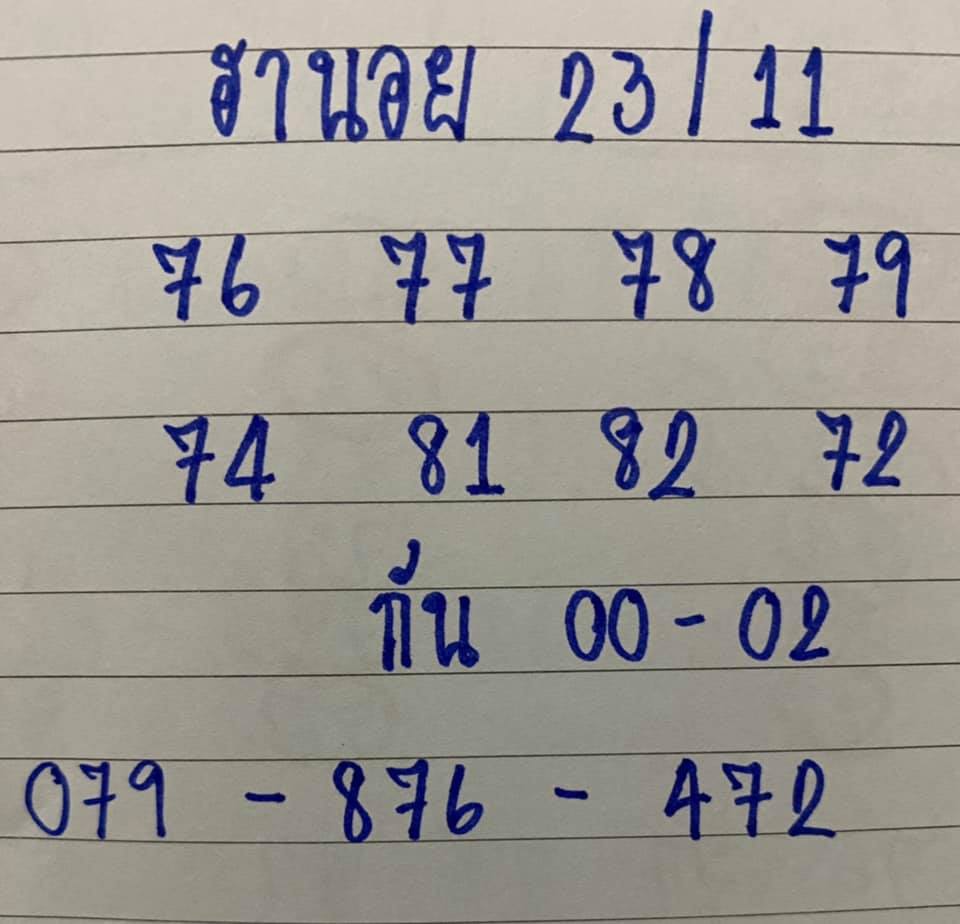 ฮานอย 23/11
76 77 78 79
74 81 82 72
กัน 00-02
079 - 876 - 472